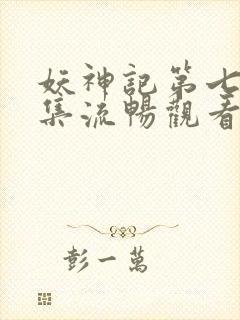 妖神記第七
集流暢觀看
彭一萬